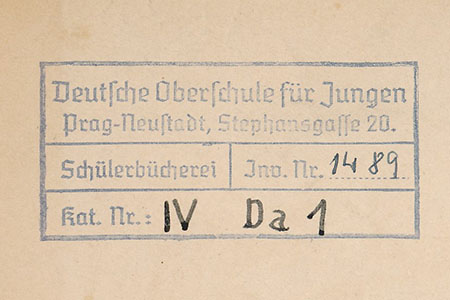 Deutsche Oberschule für Jungen
Prag-Neustadt, Stephansgasse 20.
Schülerbücherei Inv. Nr. 1489
Kat. Nr.: IV Da 1